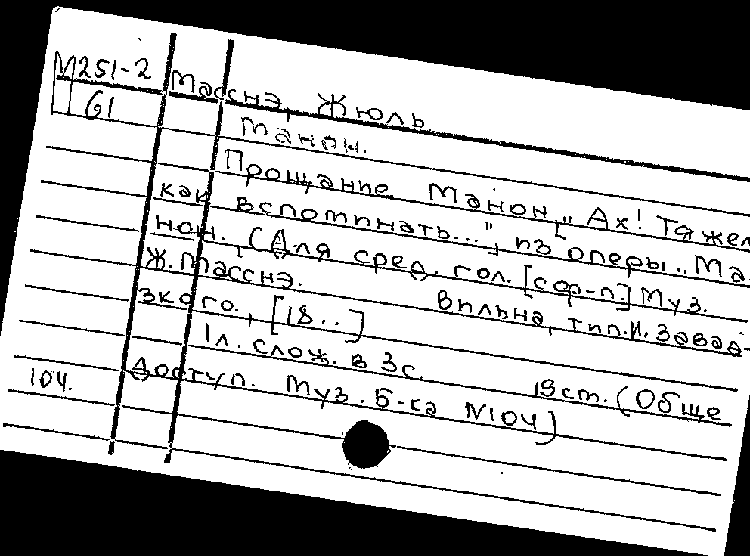 М251-2
61
Массне, Жюль
Манон.
Прощание Манон „Ах! Тяжел
как вспоминать...", из оперы „Ма
нон. (Для сред. гол. [сор-п.] Муз.
Ж. Массне. Вильна, тип. И. Завад-
зкого., [18..]
1л. слож. в 3с. 19ст. (Обще
104. доступ. муз. б-ка №104)